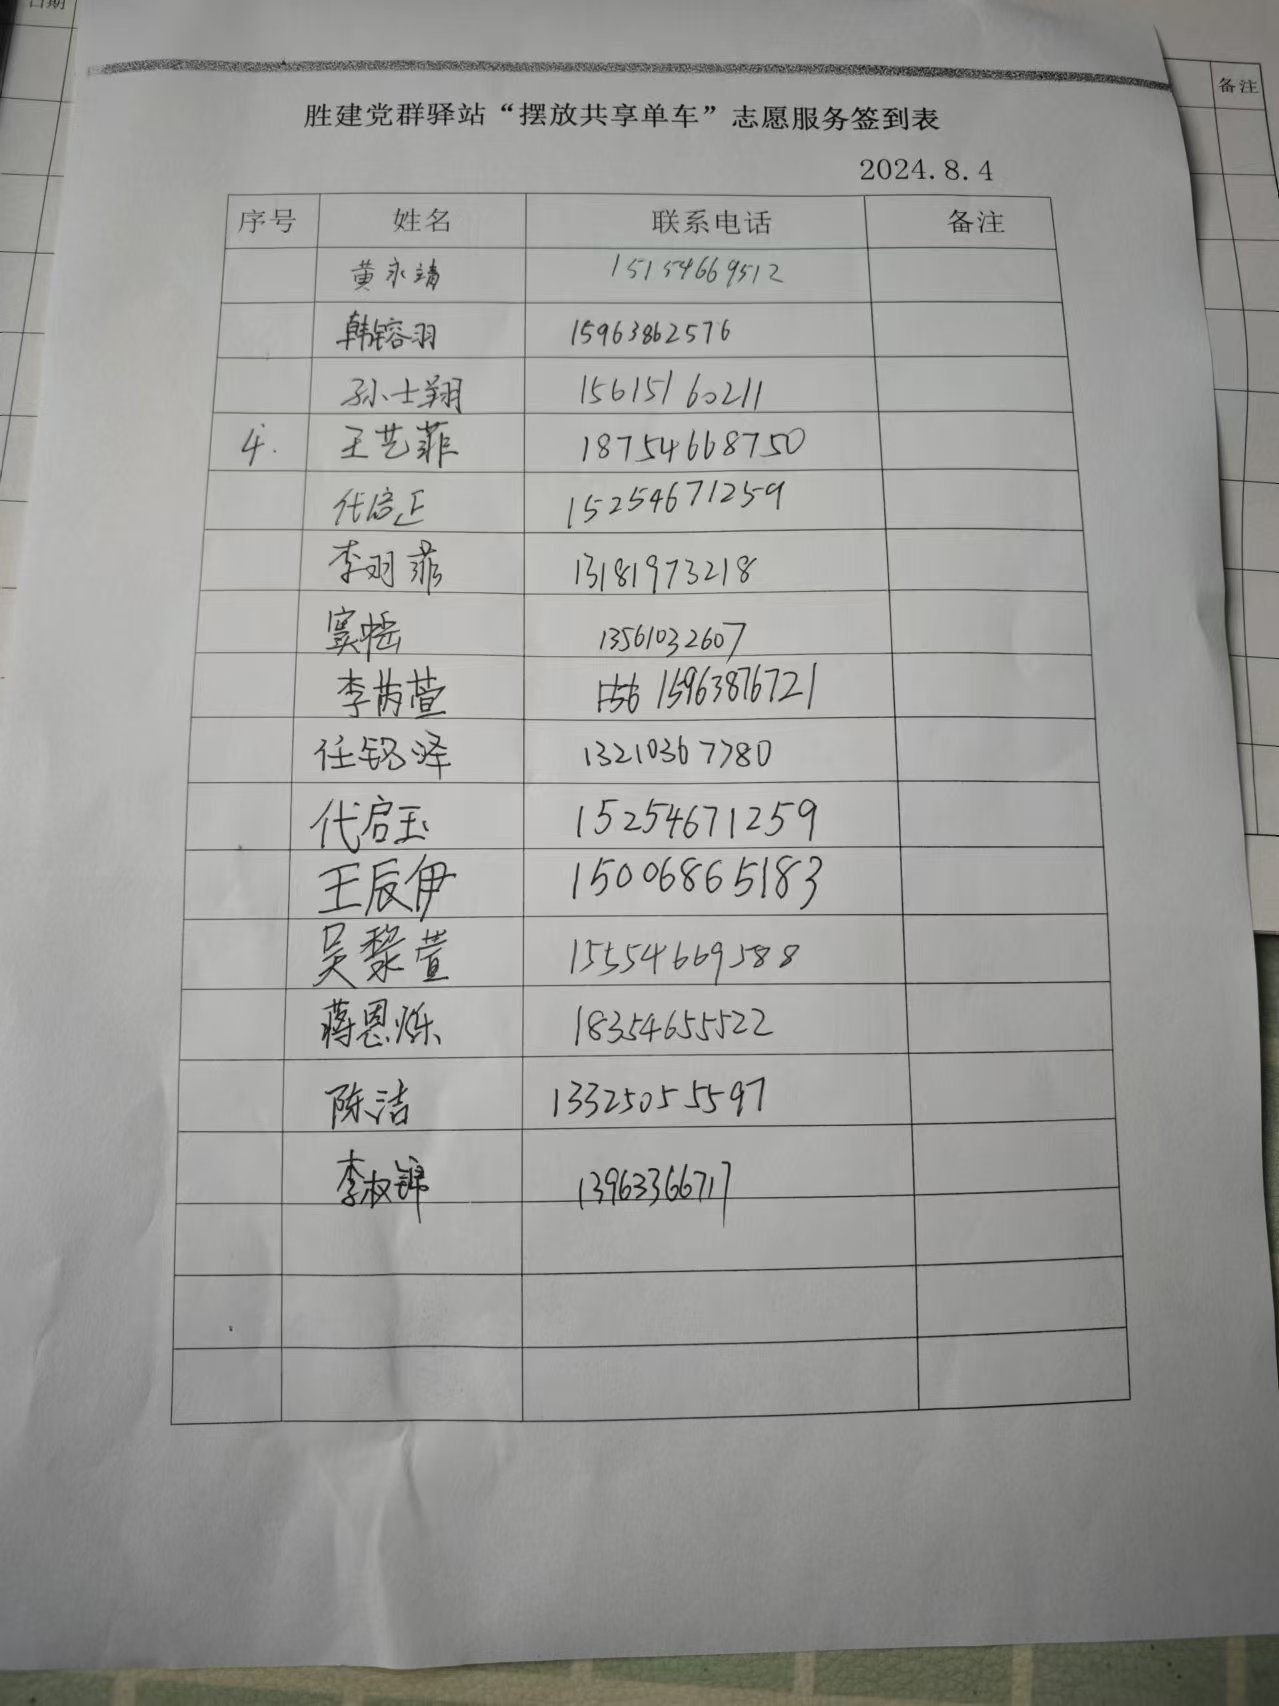 日期
备注
胜建党群驿站“摆放共享单车”志愿服务签到表
2024.8.4
序号 姓名 联系电话 备注
黄永靖 15154669512
韩镕羽 15963862576
孙士翔 15615160211
4. 王艺菲 18754668750
代启正 15254671259
李羽菲 13181973218
窦 13561032607
李芮萱 156 15963876721
任铭泽 13210367780
代启玉 15254671259
王辰伊 15006865183
吴黎萱 15554669588
蒋恩烁 18354655522
陈洁 13325055597
李权锦 13963366717